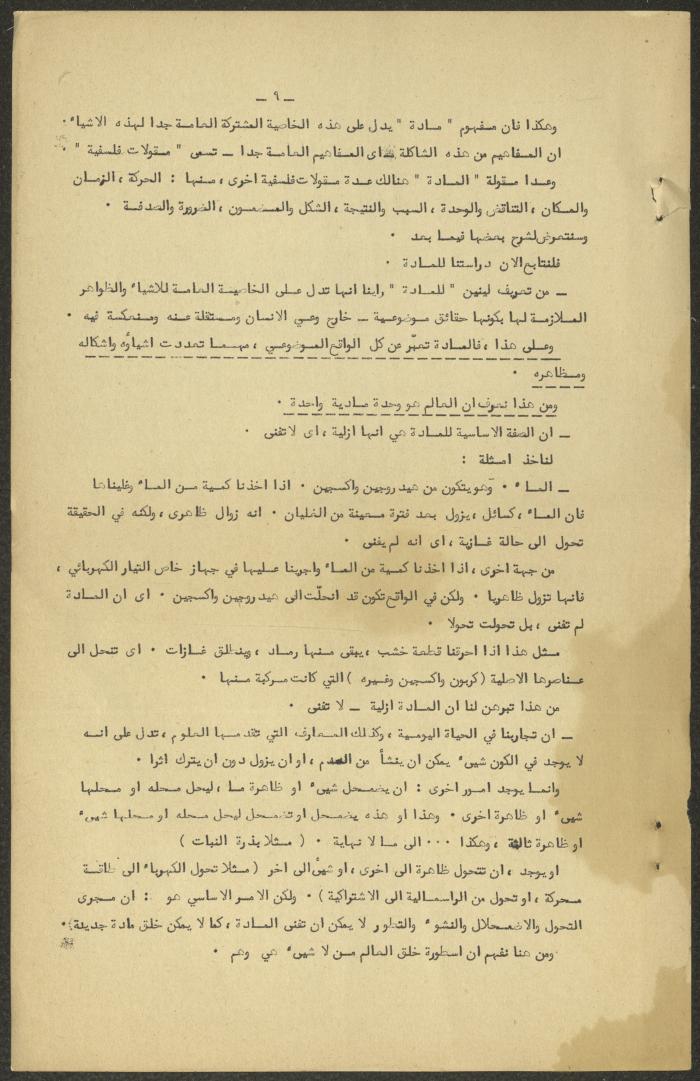 ــ ٩ ــ
وهكذا فان مفهوم " مادة " يدل على هذه الخاصية المشتركة العامة جدا لهذه الاشياء ٠
ان المفاهيم من هذه الشاكلة ــ اى المفاهيم العامة جدا ــ تسمى " مقولات فلسفية " ٠
وعدا مقولة " المادة " هنالك عدة مقولات فلسفية اخرى ، منها : الحركة ، الزمان
والمكان ، التناقض والوحدة ، السبب والنتيجة ، الشكل والمضمون ، الضرورة والصدفة ٠
وسنتعرض لشرح بعضها فيما بعد ٠
فلنتابع الان دراستنا للمادة ٠
ــ من تعريف لينين " للمادة " راينا انها تدل على الخاصية العامة للاشياء والظواهر
الملازمة لها بكونها حقائق موضوعية ــ خارج وعي الانسان ومستقلة عنه ومنعكسة فيه ٠
وعلى هذا ، فالمادة تعبّر عن كل الواقع الموضوعي ، مهما تعددت اشياؤه واشكاله
ومظاهره ٠
ومن هذا نعرف ان العالم هو وحدة مادية واحدة ٠
ــ ان الصفة الاساسية للمادة هي انها ازلية ، اى لا تفنى ٠
لناخذ امثلة :
ــ الماء ٠ وهو يتكون من هيدروجين واكسجين ٠ اذا اخذنا كمية من الماء وغليناها
فان الماء ، كسائل ، يزول بعد فترة معينة من الغليان ٠ انه زوال ظاهرى ، ولكنه في الحقيقة
تحول الى حالة غازية ، اى انه لم يفنى ٠
من جهة اخرى ، اذا اخذنا كمية من الماء واجرينا عليها في جهاز خاص التيار الكهربائي ،
فانها تزول ظاهريا ٠ ولكن في الواقع تكون قد انحلّت الى هيدروجين واكسجين ٠ اى ان المادة
لم تفنى ، بل تحولت تحولا ٠
مثل هذا اذا احرقنا قطعة خشب ، يبقى منها رماد ، وينطلق غازات ٠ اى تنحل الى
عناصرها الاصلية ( كربون واكسجين وغيره ) التي كانت مركبة منها ٠
من هذا تبرهن لنا ان المادة ازلية ــ لا تفنى ٠
ــ ان تجاربنا في الحياة اليومية ، وكذلك المعارف التي تقدمها العلوم ، تدل على انه
لا يوجد في الكون شيىء يمكن ان ينشأ من العدم ، او ان يزول دون ان يترك اثرا ٠
وانما يوجد امور اخرى : ان يضمحل شيىء او ظاهرة ما ، ليحل محله او محلها
شيىء او ظاهرة اخرى ٠ وهذا او هذه يضمحل او تضمحل ليحل محله او محلها شيىء
او ظاهرة ثالثة ، وهكذا ٠٠٠ الى ما لا نهاية ٠ ( مثلا بذرة النبات )
او يوجد ، ان تتحول ظاهرة الى اخرى ، او شيىء الى اخر ( مثلا تحول الكهرباء الى طاقة
محركة ، او تحول من الراسمالية الى الاشتراكية ) ٠ ولكن الامر الاساسي هو : ان مجرى
التحول والاضمحلال والنشوء والتطور لا يمكن ان تفنى المادة ، كما لا يمكن خلق مادة جديدة ٠
ومن هنا نفهم ان اسطورة خلق العالم من لا شيىء هي وهم ٠